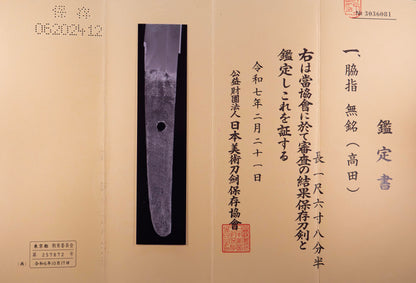 № 3036081
鑑定書
一、脇指 無銘（高田）
長 一尺六寸八分半
右は當協會に於て審査の結果保存刀剣と
鑑定しこれを証する
令和七年二月二十一日
公益財團法人 日本美術刀劍保存協會
保存
06202412
東京都 教育委員会
第 257872 号
令和6年10月17日